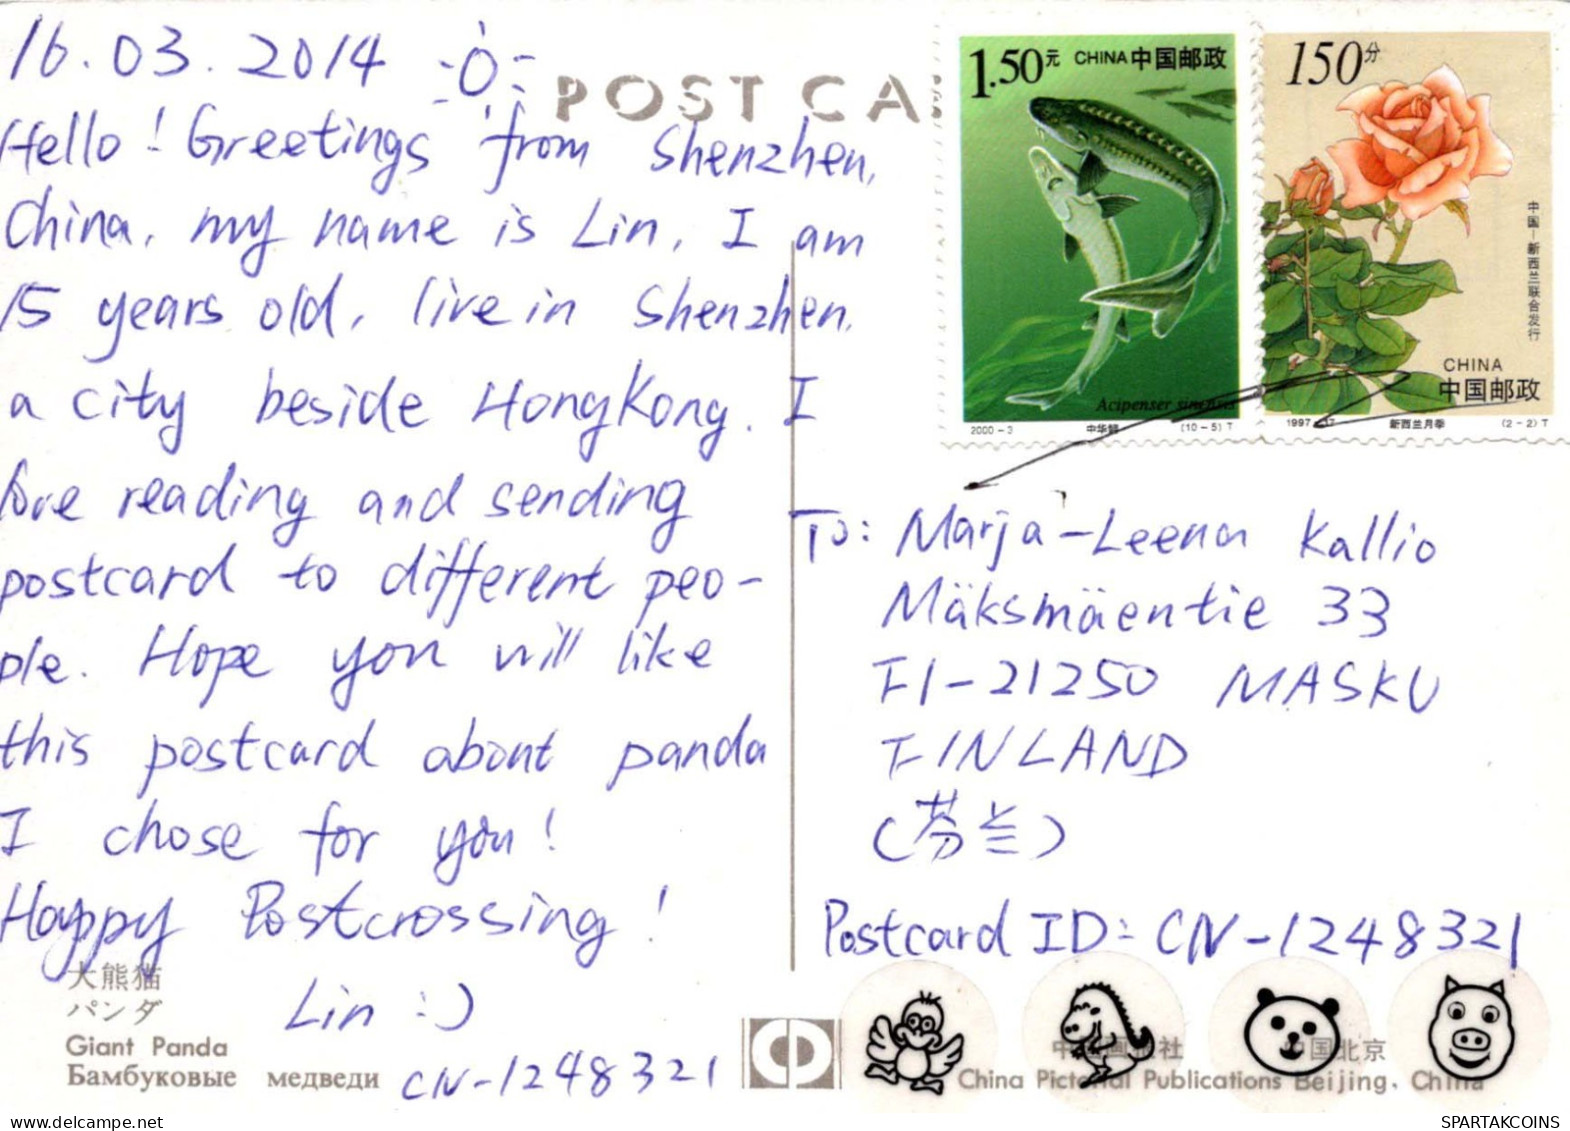 16.03.2014
POST CA
Hello! Greetings from Shenzhen,
China, my name is Lin, I am
15 years old, live in Shenzhen,
a city beside HongKong. I
love reading and sending
postcard to different peo-
ple. Hope you will like
this postcard about panda
I chose for you!
Happy Postcrossing!
Lin :)
CN-1248321
大熊猫
パンダ
Giant Panda
Бамбуковые медведи
1.50元 CHINA中国邮政
Acipenser sinensis
2000-3 中华鲟 (10-5)T
150分
中国-新西兰联合发行
CHINA
中国邮政
1997-17 新西兰月季 (2-2)T
To: Marja-Leena Kallio
Mäksmäentie 33
FI-21250 MASKU
FINLAND
(芬兰)
Postcard ID: CN-1248321
中国画报社 中国北京
China Pictorial Publications Beijing, China
SPARTAKCOINS